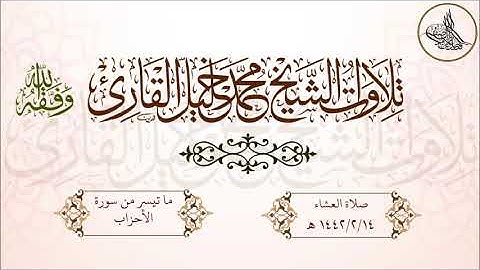 تلاوات الشيخ محمد خليل القارئ
وفقه الله
صلاة العشاء
١٤٤٢/٢/١٤ هـ
ما تيسر من سورة
الأحزاب